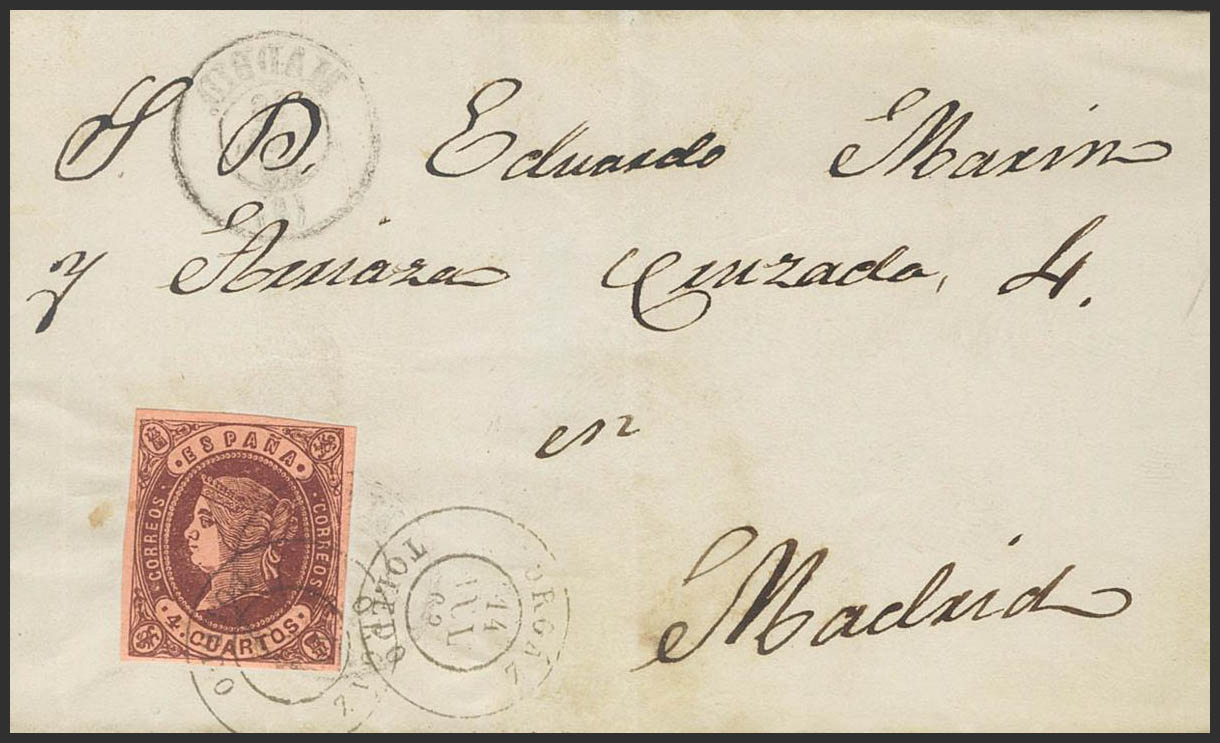 S. D. Eduardo Marin
y Arriaza Cruzada, 4.
en
Madrid
ESPAÑA
CORREOS
CORREOS
4. CUARTOS
ORGAZ
14
JUL
62
TOLEDO
MADRID